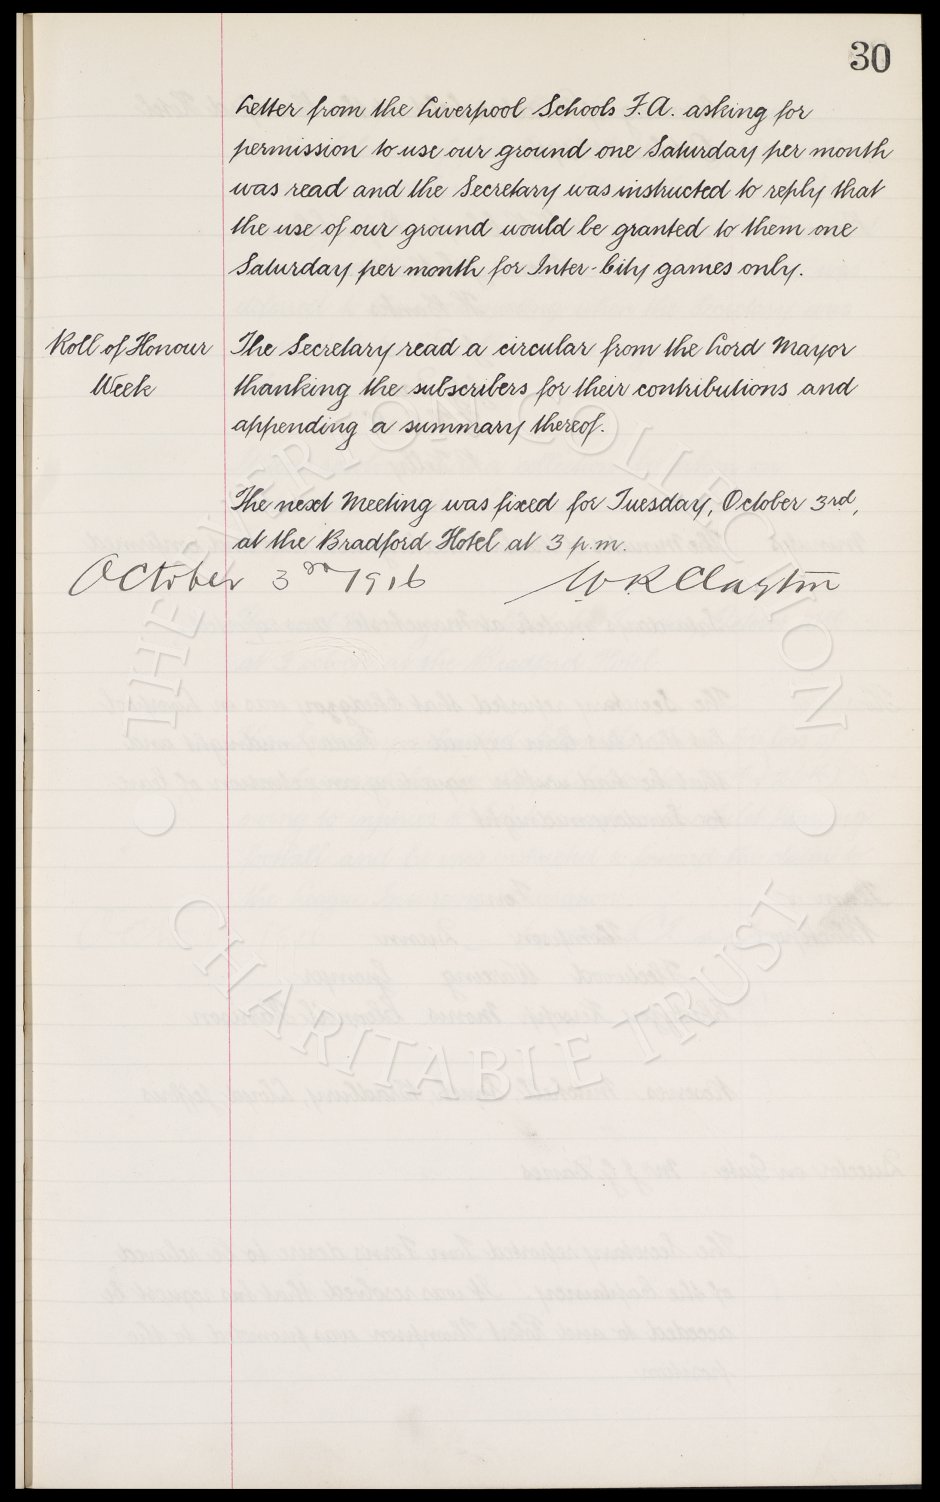 30
Letter from the Liverpool Schools F.A. asking for
permission to use our ground one Saturday per month
was read and the Secretary was instructed to reply that
the use of our ground would be granted to them one
Saturday per month for Inter-City games only.
Roll of Honour
Week
The Secretary read a circular from the Lord Mayor
thanking the subscribers for their contributions and
appending a summary thereof.
The next Meeting was fixed for Tuesday, October 3rd,
at the Bradford Hotel at 3 p.m.
October 3rd 1916
W R Clayton
• THE EVERTON COLLECTION •
CHARITABLE TRUST